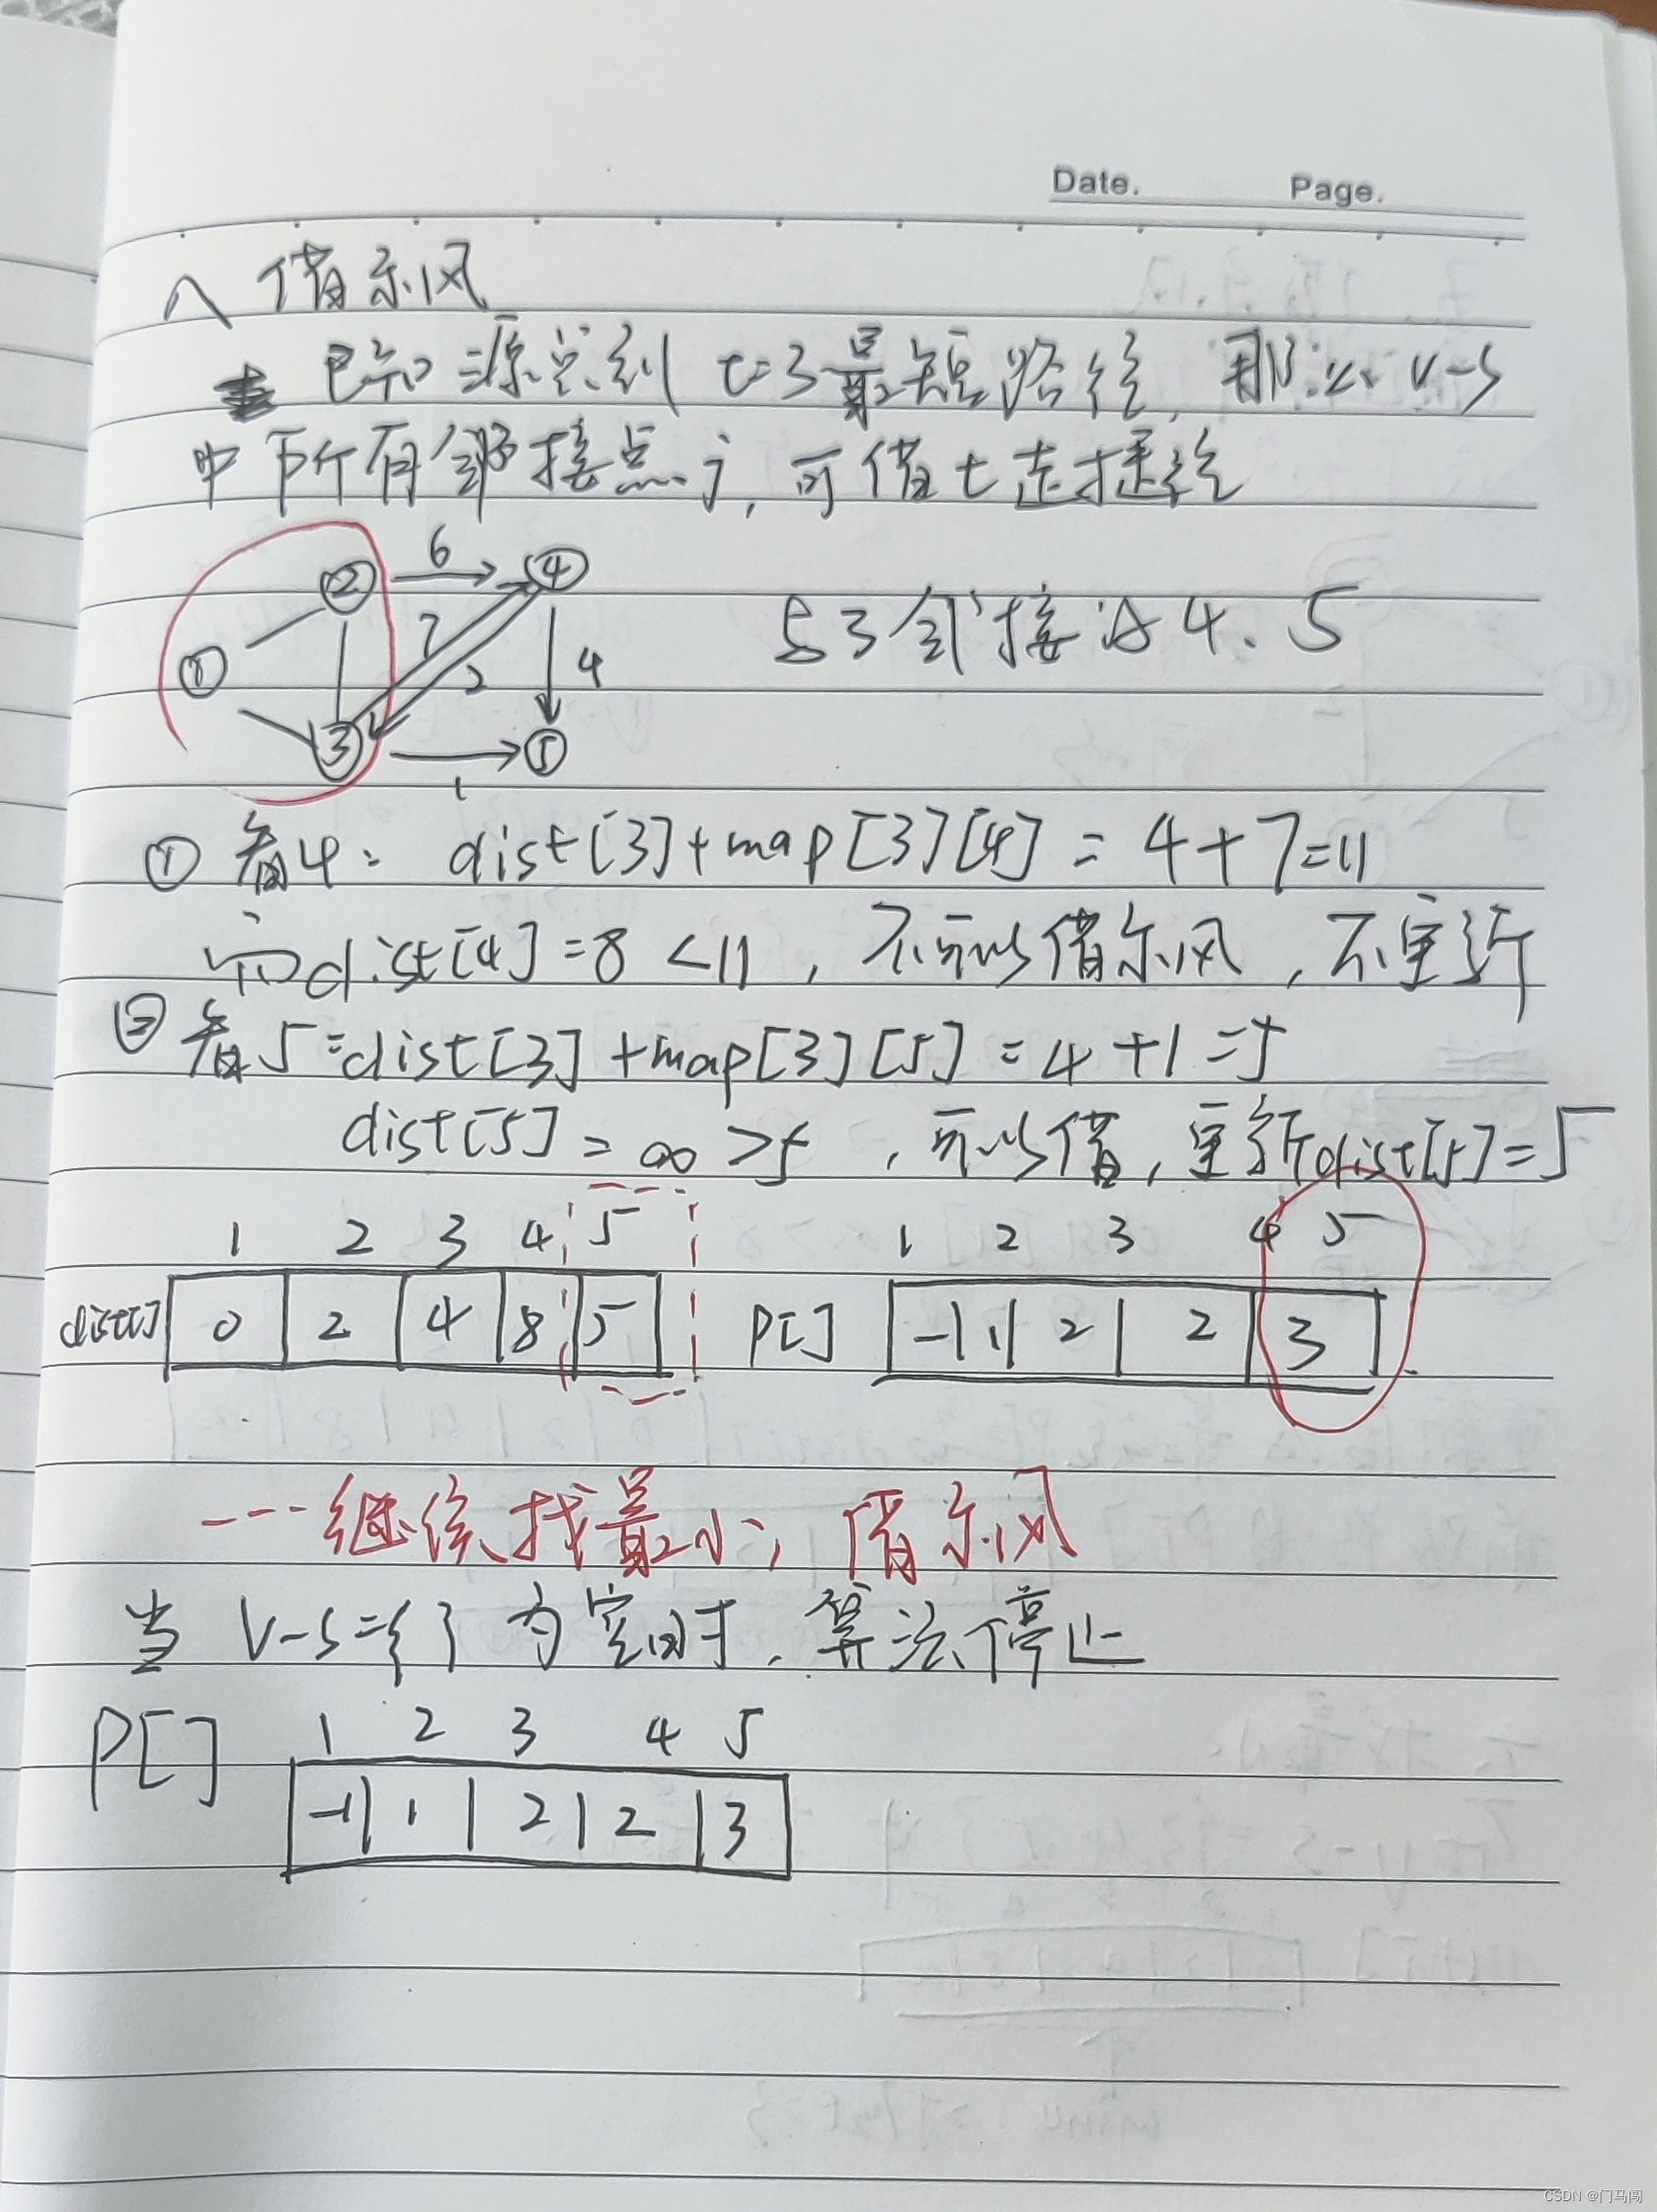 Date. Page.
八 借东风
已知源点到t=3最短路径,那么 V-S
中所有邻接点j,可借t走捷径
② 6 ④
7
① 2 4
③ 1 ⑤
与3邻接边4、5
① 看4: dist[3]+map[3][4] = 4+7=11
而dist[4]=8 <11 , 不可以借东风 , 不更新
② 看5:dist[3]+map[3][5]=4+1=5
dist[5]=∞>5 ,可以借,更新dist[5]=5
1 2 3 4 5 1 2 3 4 5
dist[] 0 2 4 8 5 P[] -1 1 2 2 3
---继续找最小,借东风
当 V-S={} 为空时,算法停止
P[] 1 2 3 4 5
-1 1 2 2 3
CSDN @门马闯